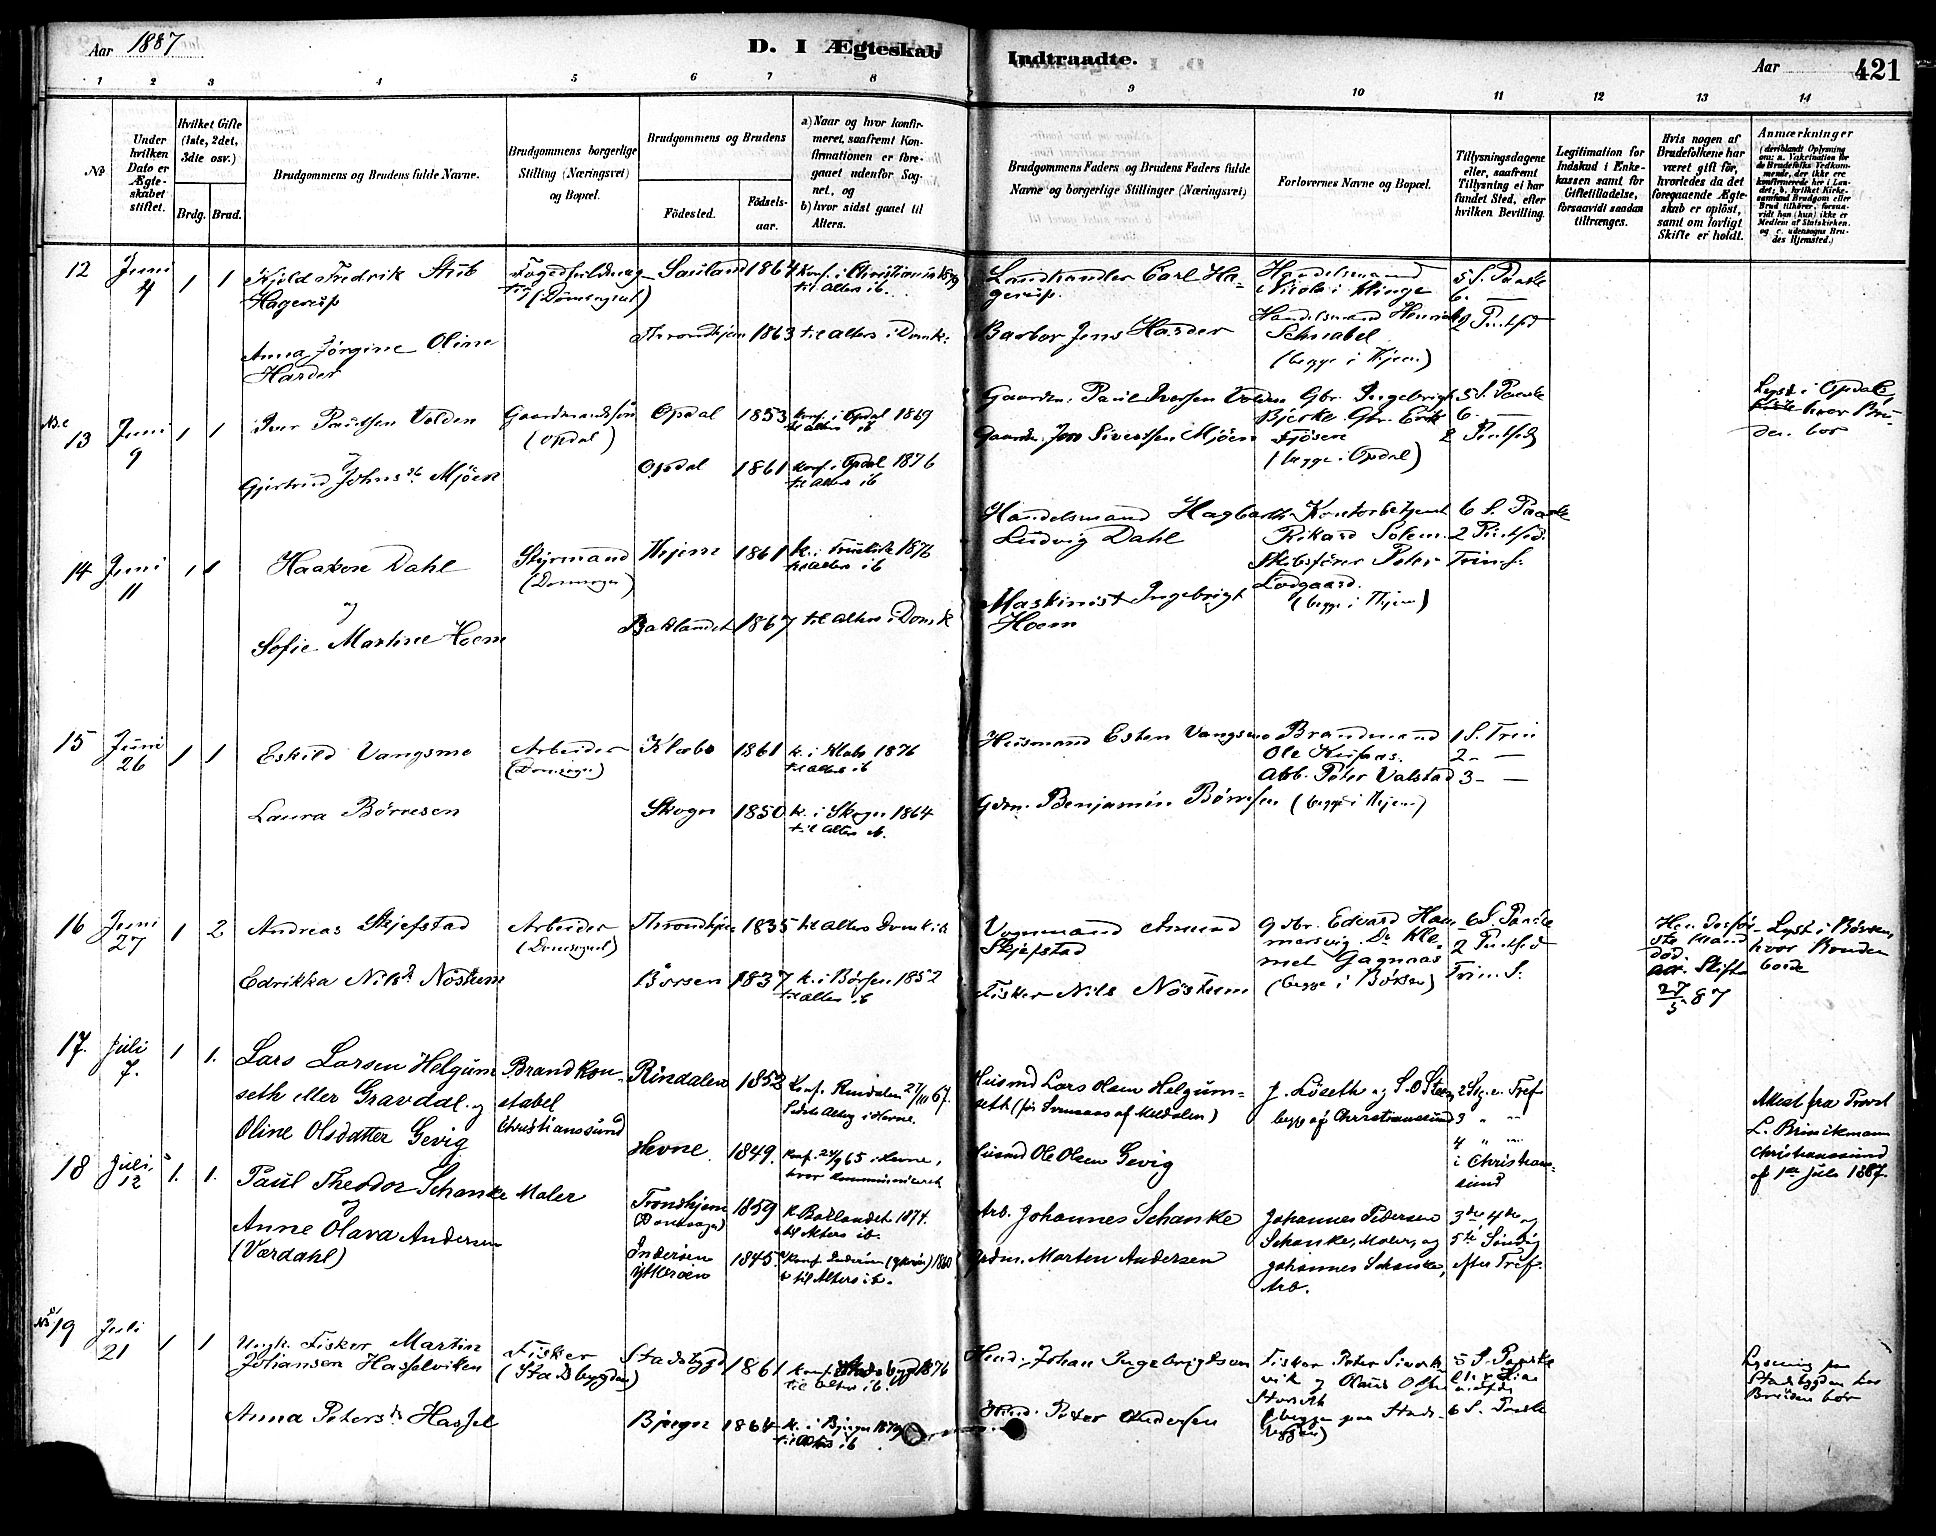 Aar 1887
D. I Ægteskab Indtraadte.
Aar 421
1 2 3 4 5 6 7 8 9 10 11 12 13 14
No
Under hvilken Dato er Ægteskabet stiftet.
Hvilket Gifte (1ste, 2det, 3die osv.)
Brdg. Brud.
Brudgommens og Brudens fulde Navne.
Brudgommens borgerlige Stilling (Næringsvei) og Bopæl.
Brudgommens og Brudens
Fødested.
Fødselsaar.
a) Naar og hvor konfirmeret, saafremt Konfirmationen er foregaaet udenfor Sognet, og
b) hvor sidst gaaet til Alters.
Brudgommens Faders og Brudens Faders fulde Navne og borgerlige Stillinger (Næringsvei)
Forlovernes Navne og Bopæl.
Tillysningsdagene eller, saafremt Tillysning ei har fundet Sted, efter hvilken Bevilling.
Legitimation for Indskud i Enkekassen samt for Giftetilladelse, forsaavidt saadan tiltrænges.
Hvis nogen af Brudefolkene har været gift før, hvorledes da det foregaaende Ægteskab er opløst, samt om lovligt Skifte er holdt.
Anmærkninger
12 Juni 4 1 1
Kjeld Fredrik Stub
Hagerup
(Domsognet)
Sauland 1864 Konf. i Christiania 1879
til alters ib.
Landhandler Carl Hagerup.
Handelsmand
5 S. Paaske
6. —
Anna Jörgine Oline
Harder
Throndhjem 1863 til alters i Domk.
Barber Jens Harder
Handelsmand Henrik
Schnabel
(begge i Thjem)
2 Pintsed
13 Juni 9 1 1
Iver Paulsen Volden
Gaardmandssön
(Opdal)
Opdal 1853 Konf. i Opdal 1869
til alters ib
Gaardm. Paul Iversen Volden
Gbr. Ingebrigt
Bjerke Gbr. Erik
(begge i Opdal)
5 S. Paaske
6. —
2 Pintsed
Lyst i Opdal,
hvor Bruden bor
og
Gjertrud Johnsdt Mjöen
Opdal 1861 Konf. i Opdal 1876
til alters ib
Gaardm. Jon Sivertsen Mjöen
14 Juni 11 1 1
Haakon Dahl
Styrmand
(Domsogn)
Thjem 1861 k. i Fruekirke 1876
til alters ib
Handelsmand Hagbarth
Ludvig Dahl
Kontorbetjent
Rikard Solem
Skibsförer Peter
Lodgaard.
(begge i Thjem)
6 S. Paaske
2 Pintsed.
Trin. S.
og
Sofie Martine Hoem
Baklandet 1867 til alters i Domk
Maskinist Ingebrigt
Hoem
15 Juni 26 1 1
Eskild Vangsmo
Arbeider
(Domsogn)
Klæbo 1861 k. i Klæbo 1876
til alters ib
Husmand Esten Vangsmo
Brandmand
Ole
Arb. Peter Valstad
(begge i Thjem)
1 S. Trin
2 - —
3 - —
Laura Börresen
Skogn 1850 k. i Skogn 1864
til alters ib.
Gdm. Benjamin Börresen
16 Juni 27 1 2
Andreas Skjefstad
Arbeider
(Domsognet)
Throndhjem 1835 til alters Domk.
Vognmand Amund
Skjefstad
Gdbr. Edvard Hammersvig. Do Klemet Gagnaas
(begge i Börsen)
6 S. Paaske
2 Pintsed
Trin. S.
död.
27/5 87
Lyst i Börsen,
hvor Bruden
boede
Edrikka Nilsdt Nöstum
Börsen 1837 k. i Börsen 1852
til alters ib
Fisker Nils Nöstum
17. Juli 7. 1 1.
Lars Larsen Helgumseth eller Gravdal og
Brandkonstabel
Christianssund
Rindalen 1852 Konf. Rindalen 27/11 67.
Sidst alters i Hevne.
Husmd Lars Olsen Helgumseth
J. Löseth og S. O. Steen
begge af Christianssund
2 Sdg. e. Tref
3 " "
4 " "
i Christianssund
Attest fra Provst
L. Brinckmann
Christianssund
af 1ste Juli 1887.
Oline Olsdatter Gevig
Hevne. 1849. Konf. 24/9 65 i Hevne,
hvor kommuniceret
Husmd Ole Olsen Gevig
18 Juli 12 1. 1.
Paul Theodor Schanke
Maler
Trondhjem
(Domsogn)
1859 k. Baklandet 1874.
til Alters ib.
Arb. Johannes Schanke
Johannes Pedersen
Schanke, Maler, og
Johannes Schanke,
Arb.
3die 4de og
5te Söndag
efter Tref.
og
Anne Olava Andersen
(Værdahl)
Inderöen
Ytteröen
1845. Konf. Inderöen 1860
til Alters ib.
Gdm. Morten Andersen
19 Juli 21 1 1
Ungk. Fisker Martin
Johansen Hasselviken
Fisker
(Stadsbygden)
Stadsbygd 1861 Konf. Stadsbygd 1876
til alters ib.
Johan Ingebrigtsen
Fisker Peter
og
5 S. Paaske
6 S. Paaske
Lysning paa
Stadsbygden hvor
Bruden bor
Anna Petersdt Hassel
Bjugn 1864 k. i Bjugn 1879
til Alters ib
Peter Andersen